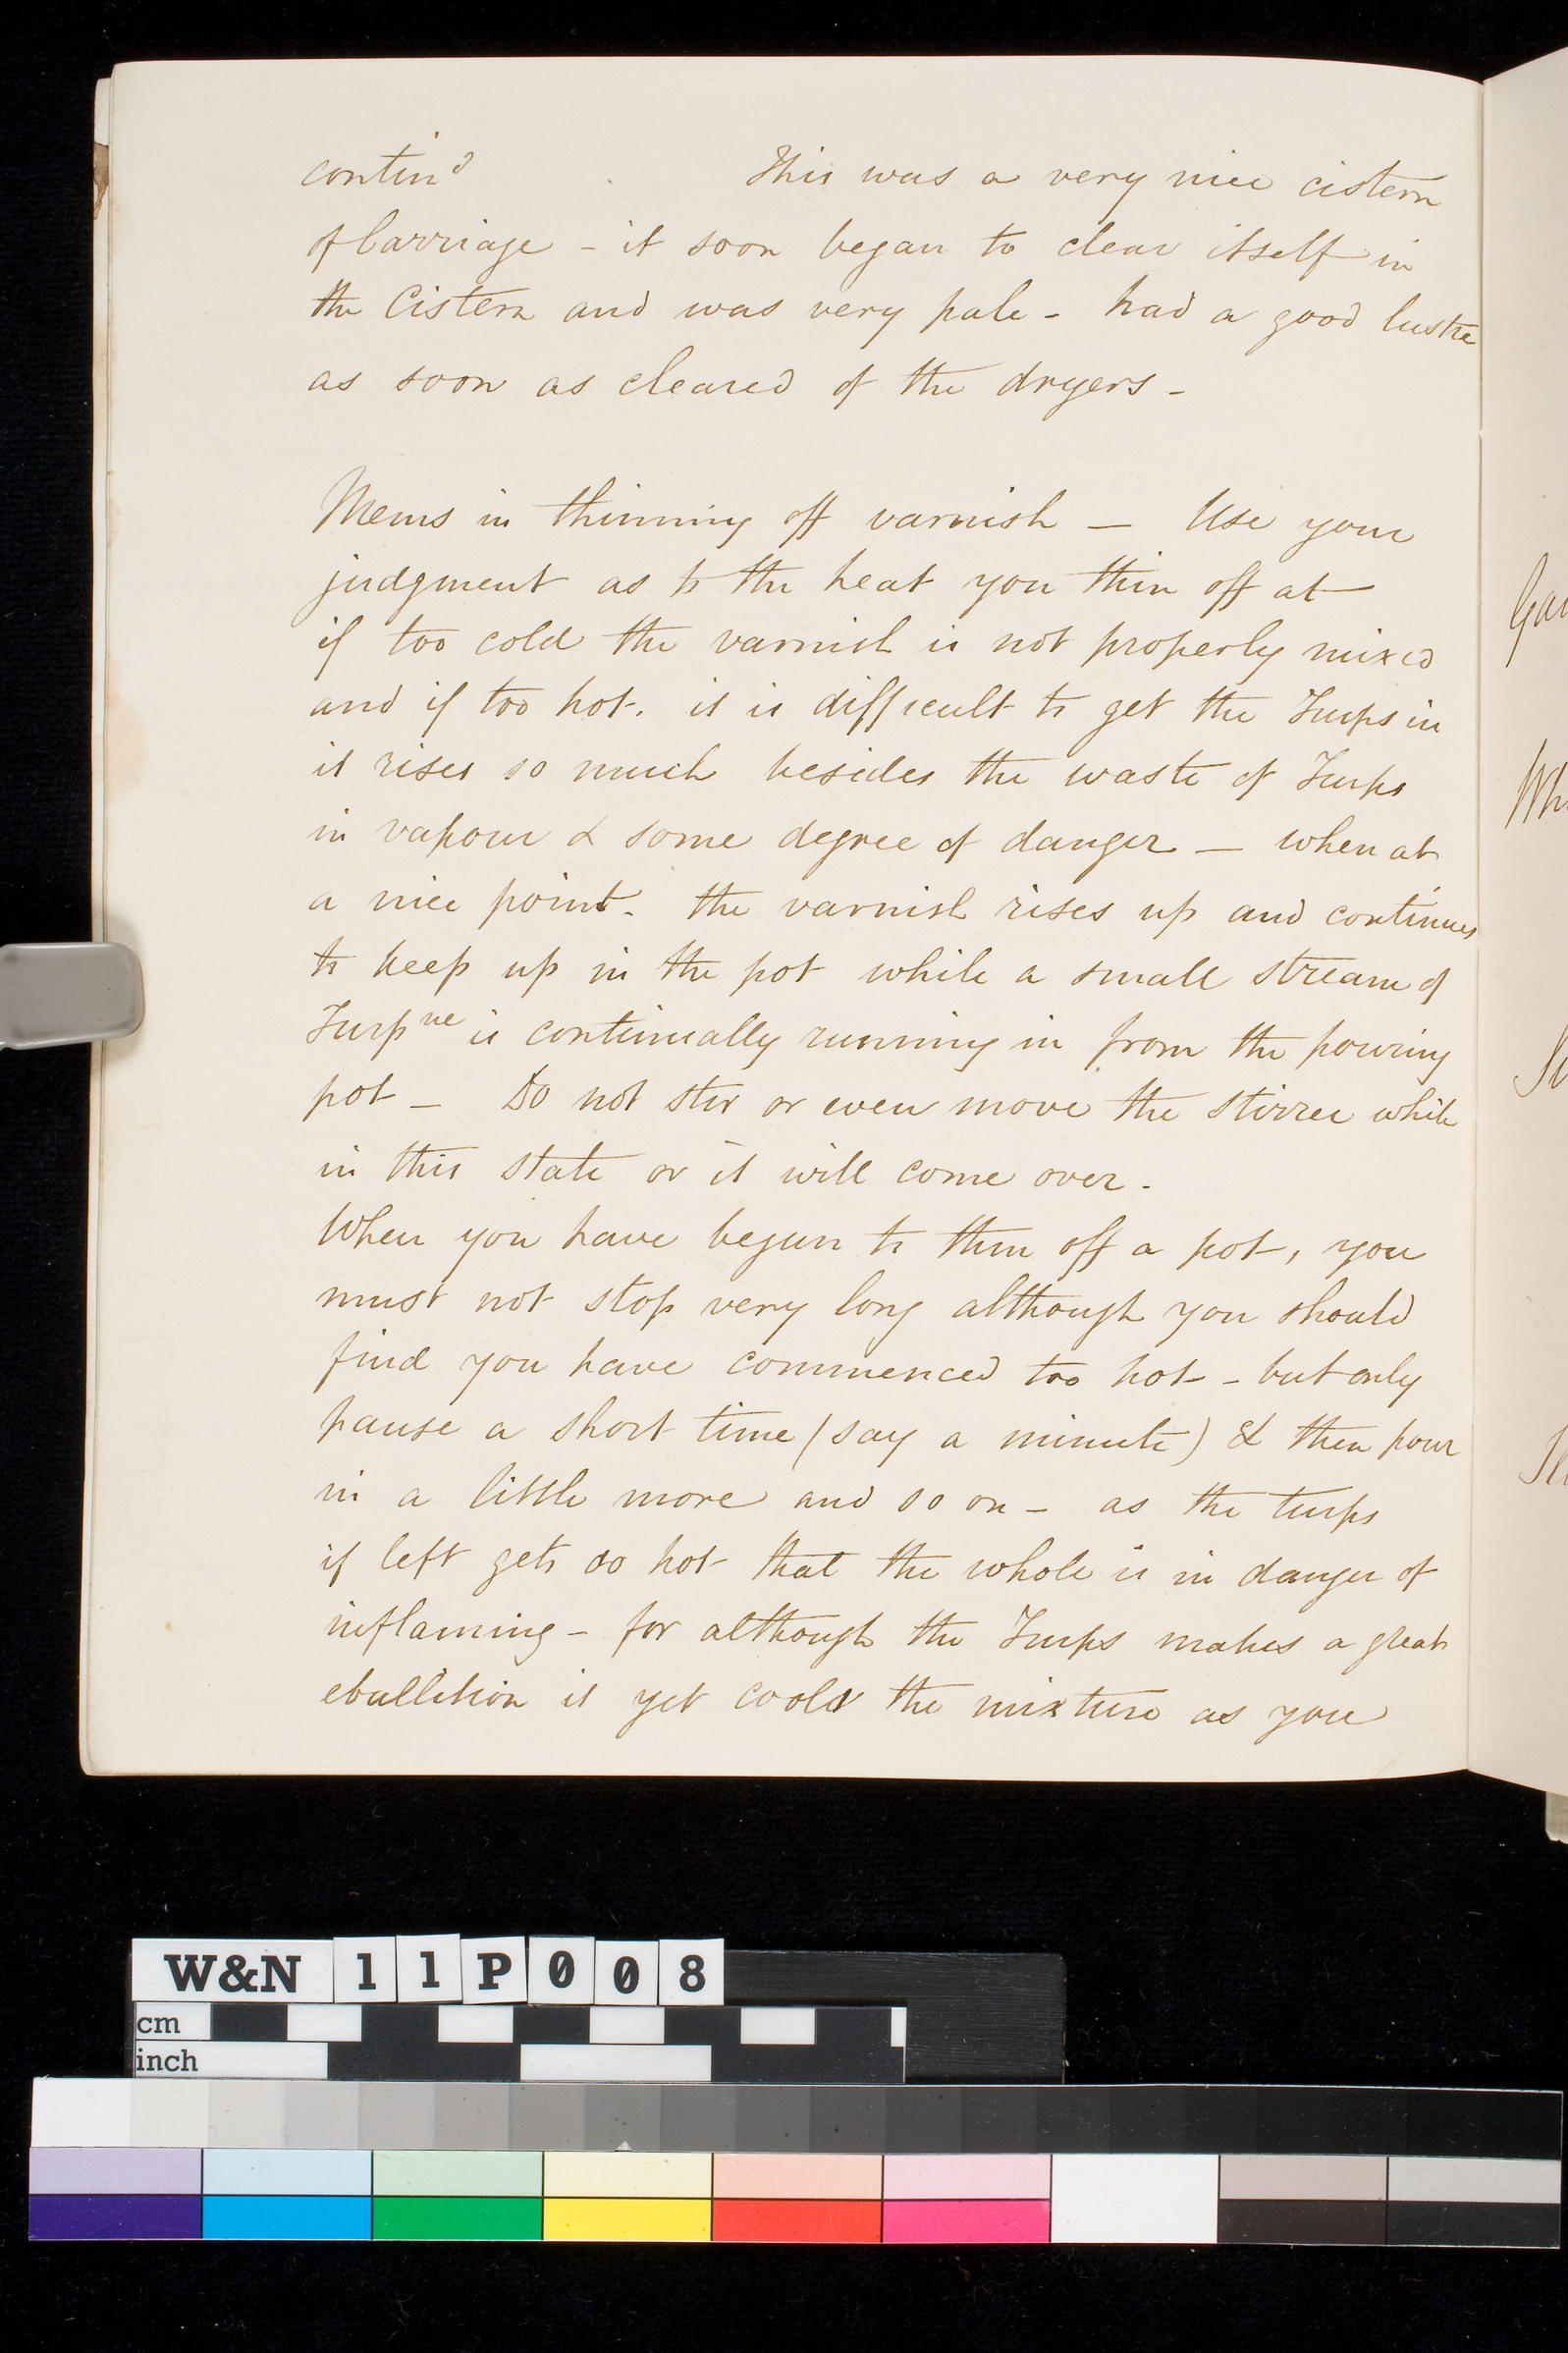 contin^d This was a very nice cistern
of Carriage - it soon began to clear itself in
the Cistern and was very pale - had a good lustre
as soon as cleared of the dryers -
Mems in thinning off varnish — Use your
judgment as to the heat you thin off at
if too cold the varnish is not properly mixed
and if too hot. it is difficult to get the Turps in
it rises so much besides the waste of Turps
in vapour & some degree of danger — when at
a nice point - the varnish rises up and continues
to keep up in the pot while a small stream of
Turp^ne is continually running in from the pouring
pot — Do not stir or even move the stirrer while
in this state or it will come over.
When you have begun to thin off a pot, you
must not stop very long although you should
find you have commenced too hot - but only
pause a short time (say a minute) & then pour
in a little more and so on — as the turps
if left gets so hot that the whole is in danger of
inflaming - for although the Turps makes a great
ebullition it yet cools the mixture as you
W&N 11P008
cm
inch